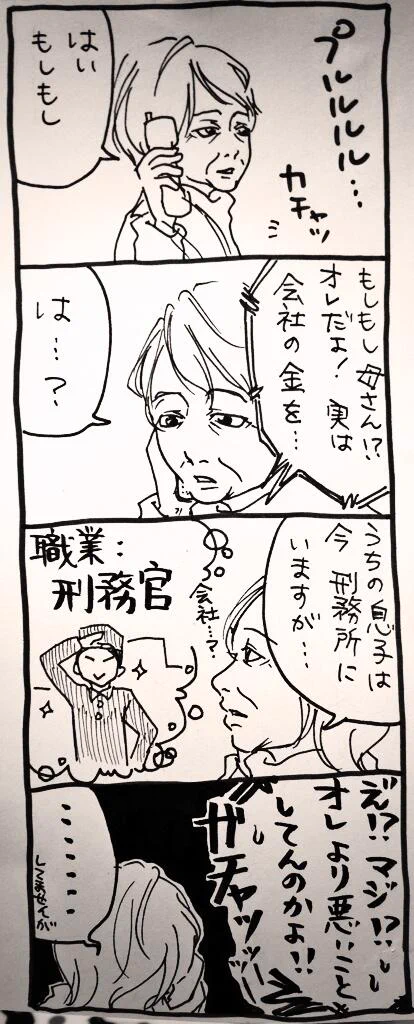 プルルルル…
ガチャッ
はい
もしもし
もしもし母さん!?
オレだよ！実は
会社の金を…
は…?
うちの息子は
今刑務所に
いますが…
会社…?
職業：
刑務官
え!?マジ!?
オレより悪いこと
してんのかよ!!
ガチャッッ
……
してませんが